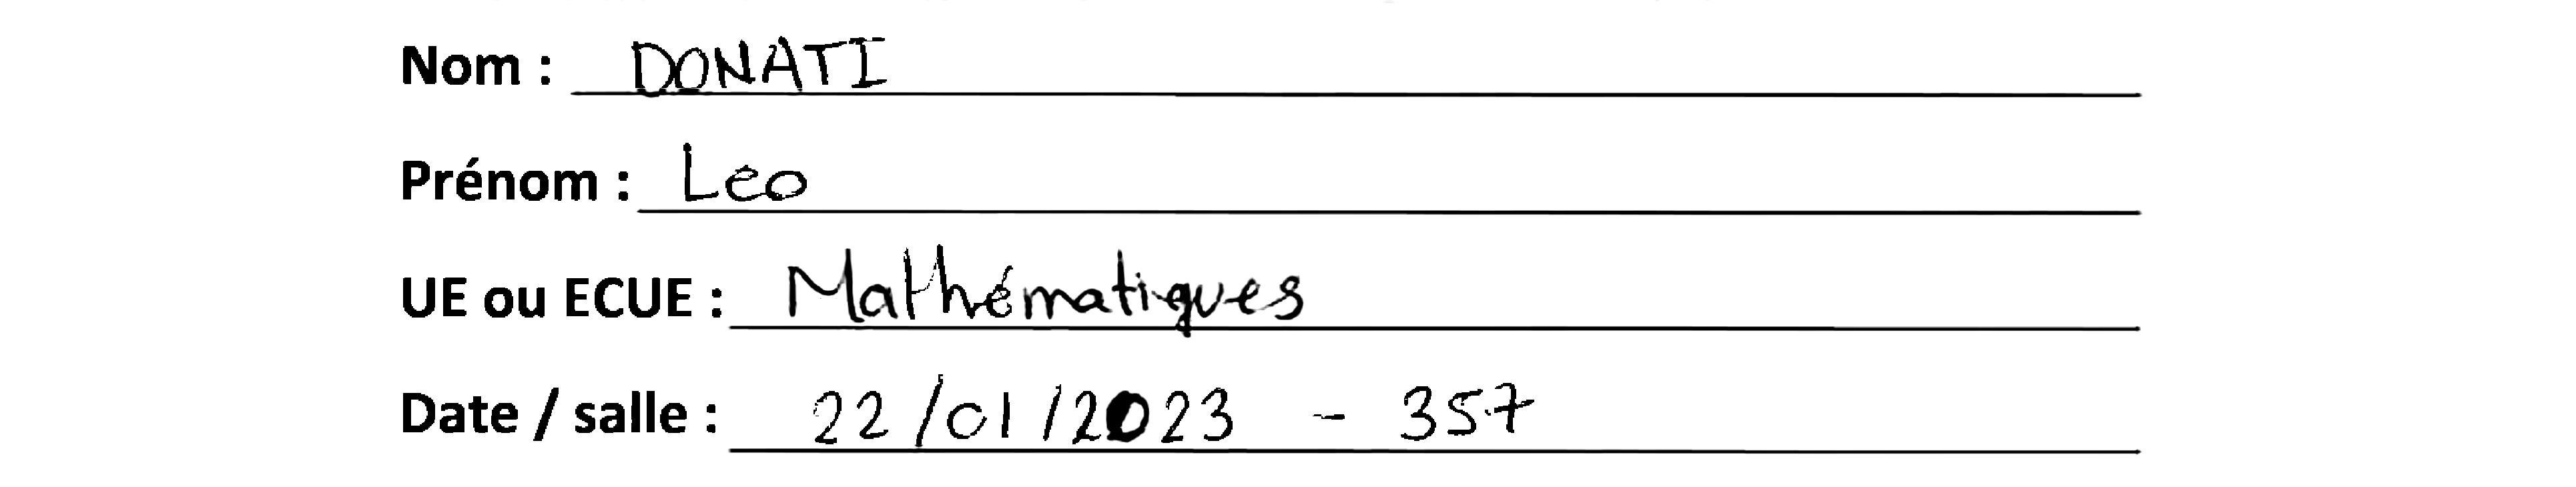 Nom : DONATI
Prénom : Leo
UE ou ECUE : Mathématiques
Date / salle : 22/01/2023 - 357